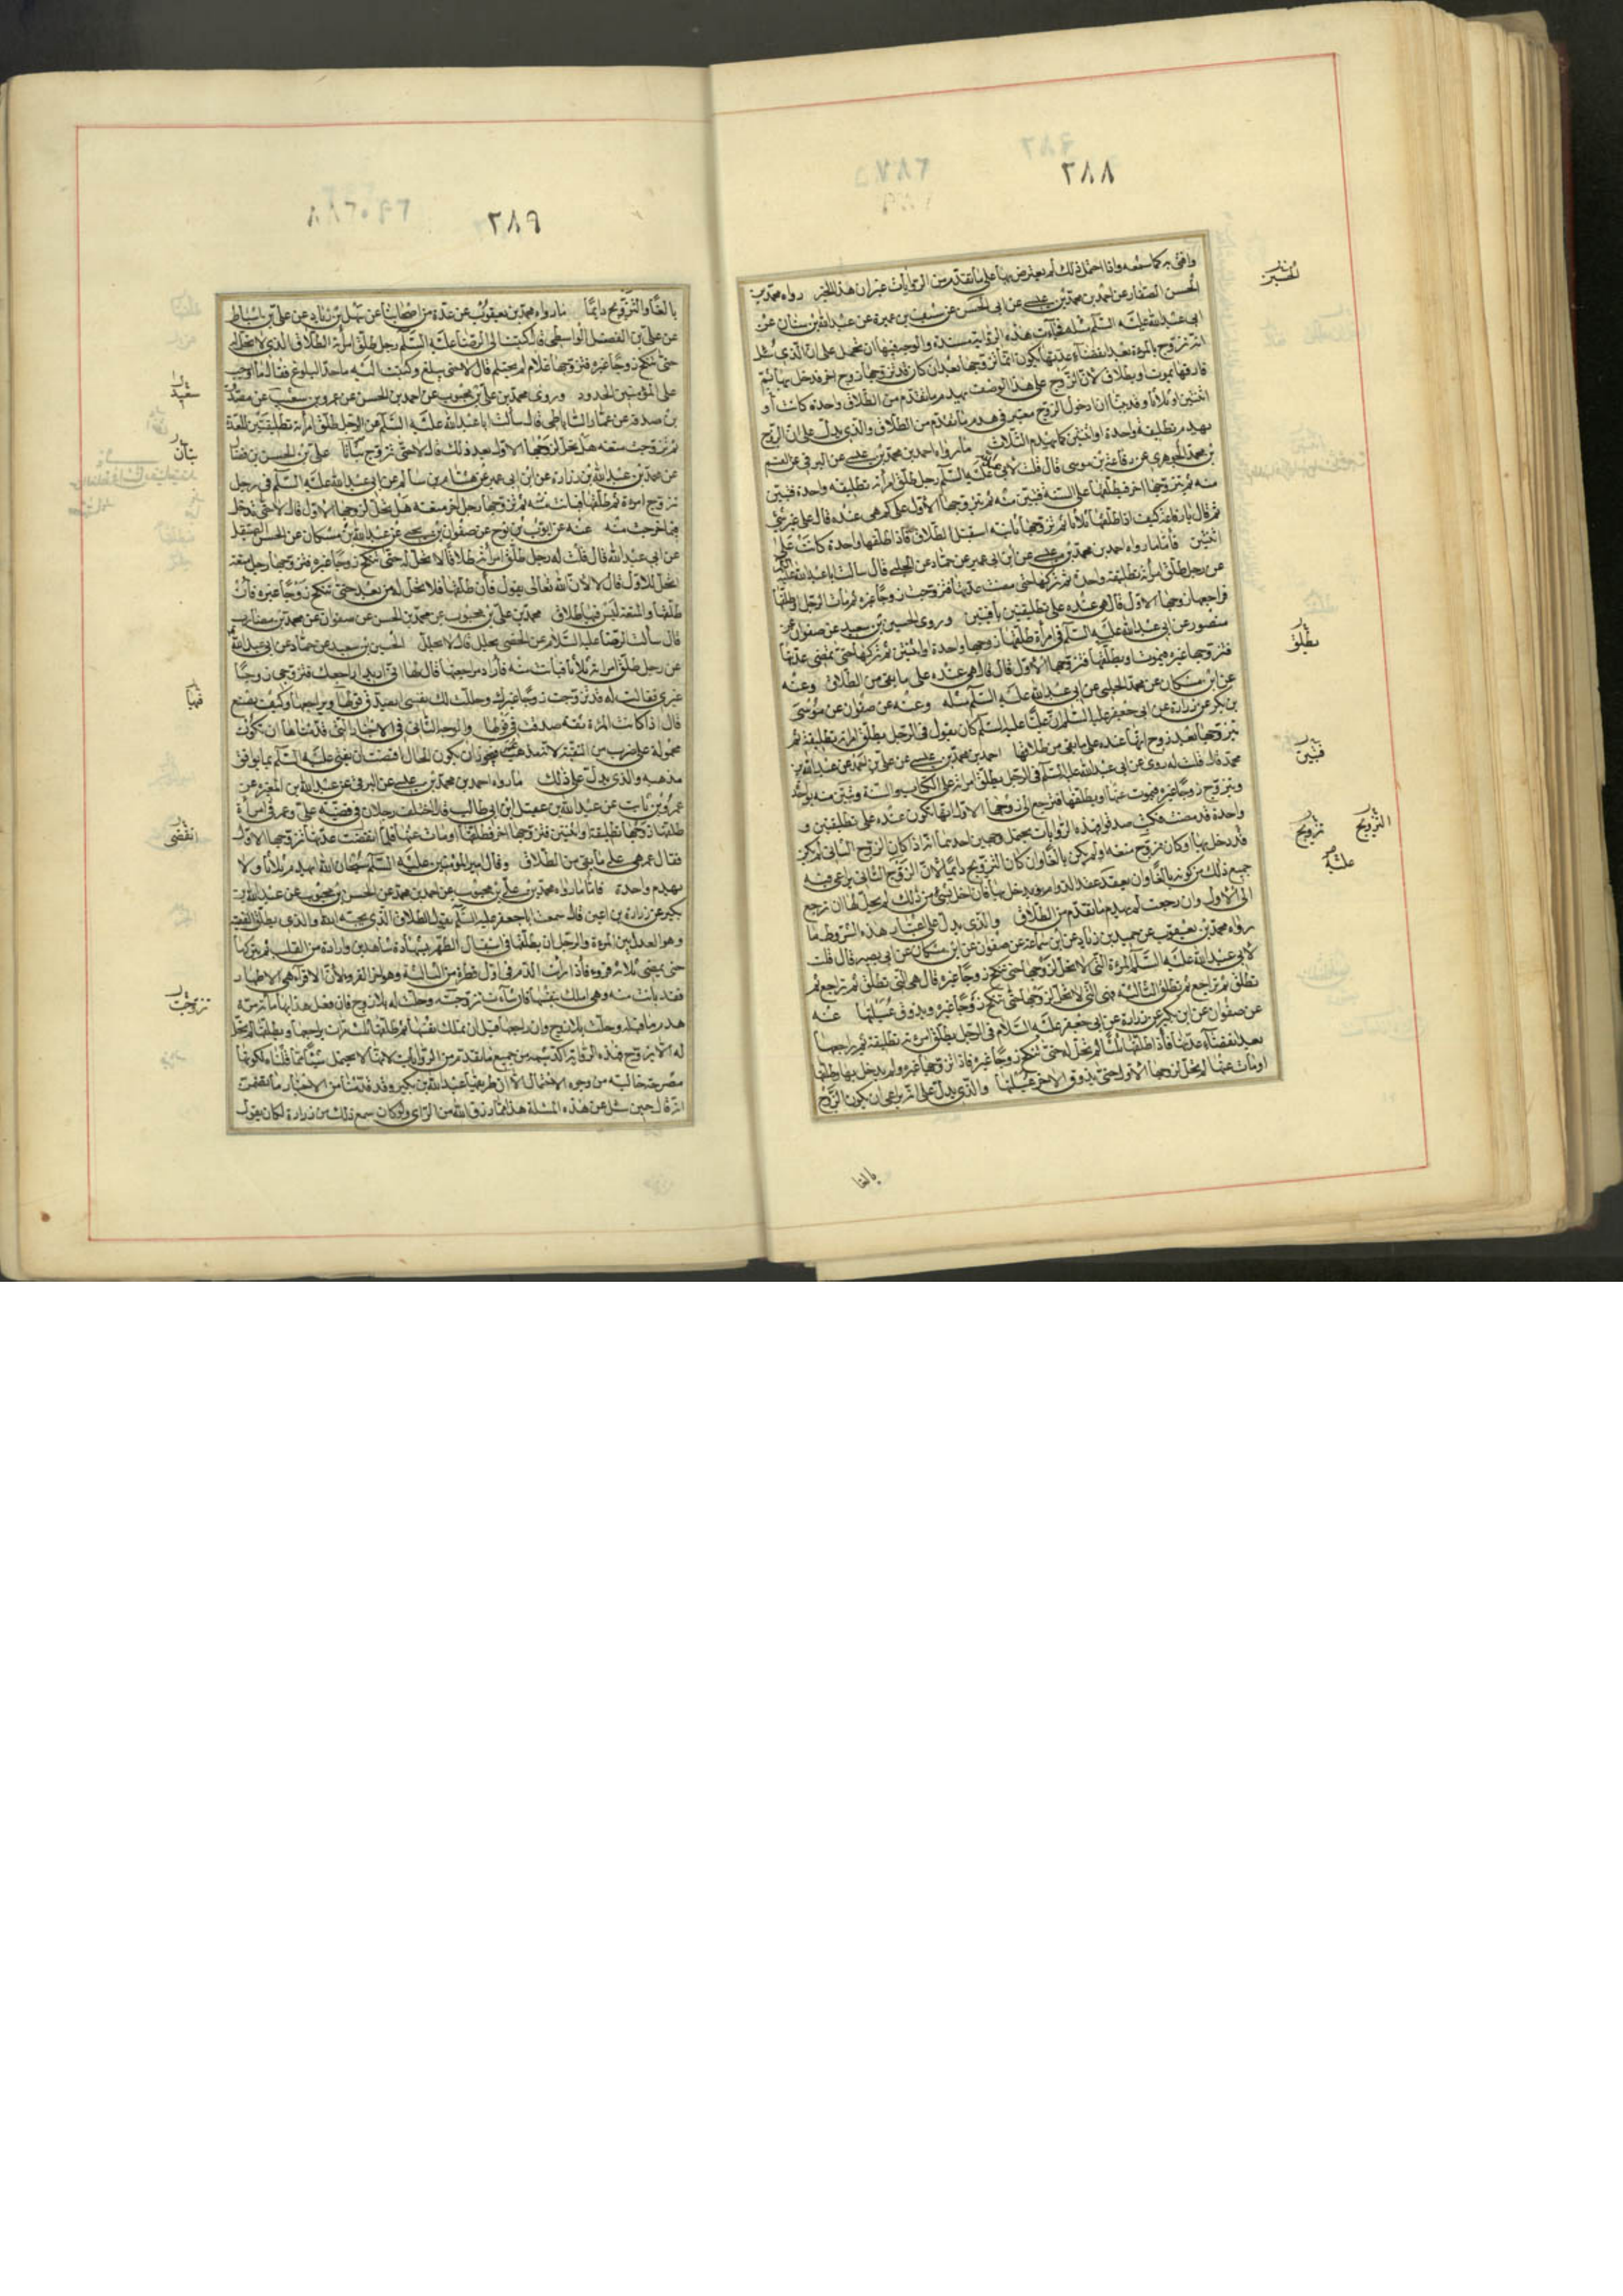 ٢٨٨
وافتى به كما سمعه واذا احتمل ذلك لم يعترض بها على ما تقدم من الروايات غير ان هذا الخبر رواه محمد بن
الحسن الصفار عن احمد بن محمد بن عيسى عن ابى الحسن عن سيف بن عميرة عن عبد الله بن سنان عن
ابى عبد الله عليه السلم مثله فجآءت هذه الرواية مسندة والوجه فيها ان نحمل على ان الذى سئل
انه تزوج بالمرءة بعد انقضآء عدتها يكون انما تزوجها بعد ان كان قد تزوجها زوج اخر فدخل بها ثم
فارقها بموت او بطلاق لان الزوج على هذا الوصف يهدم ما تقدم من الطلاق واحدة كانت او
اثنتين او ثلاثا وقد بينا ان دخول الزوج معتبر فى هدم ما تقدم من الطلاق والذى يدل على ان الزوج
يهدم تطليقة واحدة او اثنتين كما يهدم الثلاث ما رواه احمد بن محمد بن عيسى عن البرقى عن القسم
بن محمد الجوهرى عن رفاعة بن موسى قال قلت لابى عبد الله عليه السلم رجل طلق امرأته تطليقة واحدة فتبين
منه ثم يتزوجها اخر فيطلقها على السنة فتبين منه ثم يتزوجها الاول على كم هى عنده قال على غير شئ
ثم قال يا رفاعة كيف اذا طلقها ثلاثا ثم تزوجها ثانية استقبل الطلاق فاذا طلقها واحدة كانت على
اثنتين فاما ما رواه احمد بن محمد بن عيسى عن ابن ابى عمير عن حماد عن الحلبى قال سالت ابا عبد الله عليه
عن رجل طلق امرأته تطليقة واحدة ثم تركها حتى مضت عدتها فتزوجت زوجا غيره ثم مات الرجل او طلقها
فراجعها زوجها الاول قال هى عنده على تطليقتين باقيتين وروى الحسين بن سعيد عن صفوان عن
منصور عن ابى عبد الله عليه السلم فى امرأة طلقها زوجها واحدة او اثنتين ثم تركها حتى تمضى عدتها
فتزوجها غيره فيموت او يطلقها فتزوجها الاول قال قال هى عنده على ما بقى من الطلاق وعنه
عن ابن مسكان عن محمد الحلبى عن ابى عبد الله عليه السلم مثله وعنه عن صفوان عن موسى
بن بكر عن زرارة عن ابى جعفر عليه السلم ان عليا عليه السلم كان يقول فى الرجل يطلق المرءة تطليقة ثم
يتزوجها بعد زوج انها عنده على ما بقى من طلاقها احمد بن محمد بن عيسى عن على بن احمد عن عبد الله بن
محمد قال قلت له روى عن ابى عبد الله عليه السلم فى الرجل يطلق امرأته على الكتاب والسنة وتبين منه بواحدة
ويتزوج زوجا غيره فيموت عنها او يطلقها فترجع الى زوجها الاول انها تكون عنده على تطليقتين و
واحدة قد مضت فكتب صدقوا فهذه الروايات يحتمل وجهين احدهما انه اذا كان الزوج الثانى لم يكن
قد دخل بها او كان تزوج متعه او لم يكن بالغا وان كان التزويج دائما لان الزوج الثانى يراعى فيه
جميع ذلك من كونه بالغا وان يعقد عقد الدوام ويدخل بها فان اخل بشئ من ذلك لم يحل لها ان ترجع
الى الاول وان رجعت لم يهدم ما تقدم من الطلاق والذى يدل على اعتبار هذه الشروط ما
رواه محمد بن يعقوب عن حميد بن زياد عن ابن سماعة عن صفوان عن ابن مسكان عن ابى بصير قال قلت
لابى عبد الله عليه السلم المرءة التى لا تحل لزوجها حتى تنكح زوجا غيره قال هى التى تطلق ثم تراجع ثم
تطلق ثم تراجع ثم تطلق الثالثة فهى التى لا تحل لزوجها حتى تنكح زوجا غيره ويذوق عسيلتها عنه
عن صفوان عن ابن بكير عن زرارة عن ابى جعفر عليه السلام فى الرجل يطلق امرءته تطليقة ثم يراجعها
بعد انقضآء عدتها فاذا طلقها الثالثة لم تحل له حتى تنكح زوجا غيره فاذا تزوجها غيره ولم يدخل بها وطلقها
او مات عنها لم تحل لزوجها الاول حتى يذوق الاخر عسيلتها والذى يدل على انه يراعى ان يكون الزوج
بالغا
الحسين
يطلق
فتبين
التزويج
تزويج
علته
٢٨٩
بالغا والتزويج دائما ما رواه محمد بن يعقوب عن عدة من اصحابنا عن سهل بن زياد عن على بن اسباط
عن على بن الفضل الواسطى قال كتبت الى الرضا عليه السلم رجل طلق امرأته الطلاق الذى لا تحل له
حتى تنكح زوجا غيره فتزوجها غلام لم يحتلم قال لا حتى يبلغ وكتبت اليه ما حد البلوغ فقال ما اوجب
على المؤمنين الحدود وروى محمد بن على بن محبوب عن احمد بن الحسن عن عمرو بن سعيد عن مصدق
بن صدقة عن عمار الساباطى قال سألت ابا عبد الله عليه السلم عن الرجل طلق امرأته تطليقتين للعدة
ثم تزوجت متعه هل تحل لزوجها الاول بعد ذلك قال لا حتى تزوج بتاتا على بن الحسن بن فضال
عن محمد بن عبد الله بن زرارة عن ابن ابى عمير عن هشام بن سالم عن ابى عبد الله عليه السلم فى رجل
تزوج امرءة ثم طلقها فبانت منه ثم تزوجها رجل اخر متعه هل تحل لزوجها الاول قال لا حتى تدخل
فيما خرجت منه عنه عن ايوب بن نوح عن صفوان بن يحيى عن عبد الله بن مسكان عن الحسن الصيقل
عن ابى عبد الله قال قلت له رجل طلق امرأته طلاقا لا تحل له حتى تنكح زوجا غيره فتزوجها رجل متعة
اتحل للاول قال لا لان الله تعالى يقول فان طلقها فلا تحل له من بعد حتى تنكح زوجا غيره فان
طلقها والمتعة ليس فيها طلاق محمد بن على بن محبوب عن محمد بن الحسن عن صفوان عن محمد بن مضارب
قال سألت الرضا عليه السلام عن الخصى يحلل قال لا يحلل الحسين بن سعيد عن حماد عن ابى عبد الله
عن رجل طلق امرأته ثلاثا فبانت منه فاراد مراجعتها قال لها انى اريد ان اراجعك فتزوجى زوجا
غيرى فقالت له قد تزوجت زوجا غيرك وحللت لك نفسى ايصدق قولها ويراجعها وكيف يصنع
قال اذا كانت المرءة ثقة صدقت فى قولها والوجه الثانى فى الاخبار التى قدمناها ان تكون
محمولة على ضرب من التقية لانه مذهب عمر فيجوز ان يكون الحال اقتضت ان يفتى عليه السلم بما يوافق
مذهبه والذى يدل على ذلك ما رواه احمد بن محمد بن عيسى عن البرقى عن عبد الله بن المغيرة عن
عمرو بن ثابت عن عبد الله بن عقيل بن ابى طالب قال اختلف رجلان فى قضية على وعمر فى امرأة
طلقها زوجها تطليقة او اثنتين فتزوجها اخر فطلقها او مات عنها فلما انقضت عدتها تزوجها الاول
فقال عمر هى على ما بقى من الطلاق وقال امير المؤمنين عليه السلم سبحان الله ايهدم ثلاثا ولا
يهدم واحدة فاما ما رواه محمد بن على بن محبوب عن احمد بن محمد عن الحسن بن محبوب عن عبد الله بن
بكير عن زرارة بن اعين قال سمعت ابا جعفر عليه السلم يقول الطلاق الذى يحبه الله والذى يطلق الفقيه
وهو العدل بين المرءة والرجل ان يطلقها فى استقبال الطهر بشهادة شاهدين وارادة من القلب ثم يتركها
حتى يمضى ثلاثة قروء فاذا رأت الدم فى اول قطرة من الثالثة وهو اخر القرء لان الاقرآء هى الاطهار
فقد بانت منه وهى املك بنفسها فان شآءت تزوجته وحلت له بلا زوج فان فعل هذا بها مائة مرة
هدم ما قبله وحلت بلا زوج وان راجعها قبل ان تملك نفسها ثم طلقها ثلث مرات يراجعها ويطلقها لم تحل
له الا بزوج فهذه الرواية اكد شبهة من جميع ما تقدم من الروايات لانها لا تحتمل شيئا مما قلناه لكونها
مصرحة خالية من وجوه الاحتمال الا ان طريقها عبد الله بن بكير وقد قدمنا من الاخبار ما تضمنت
انه قال حين سئل عن هذه المسئلة هذا مما رزق الله من الراى ولو كان سمع ذلك من زرارة لكان يقول
سعيد
بتات
فيها
انقضى
تزوجت